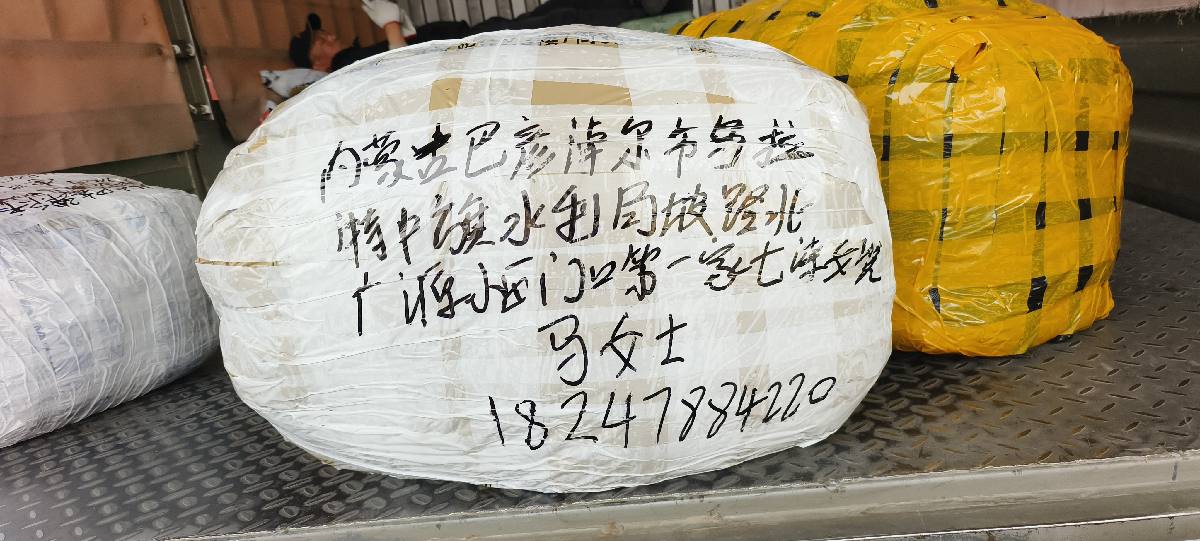 内蒙古巴彦淖尔市乌拉
特中旗水利局坡路北
广源小西门口第一家七洙女凳
马女士
18247884220